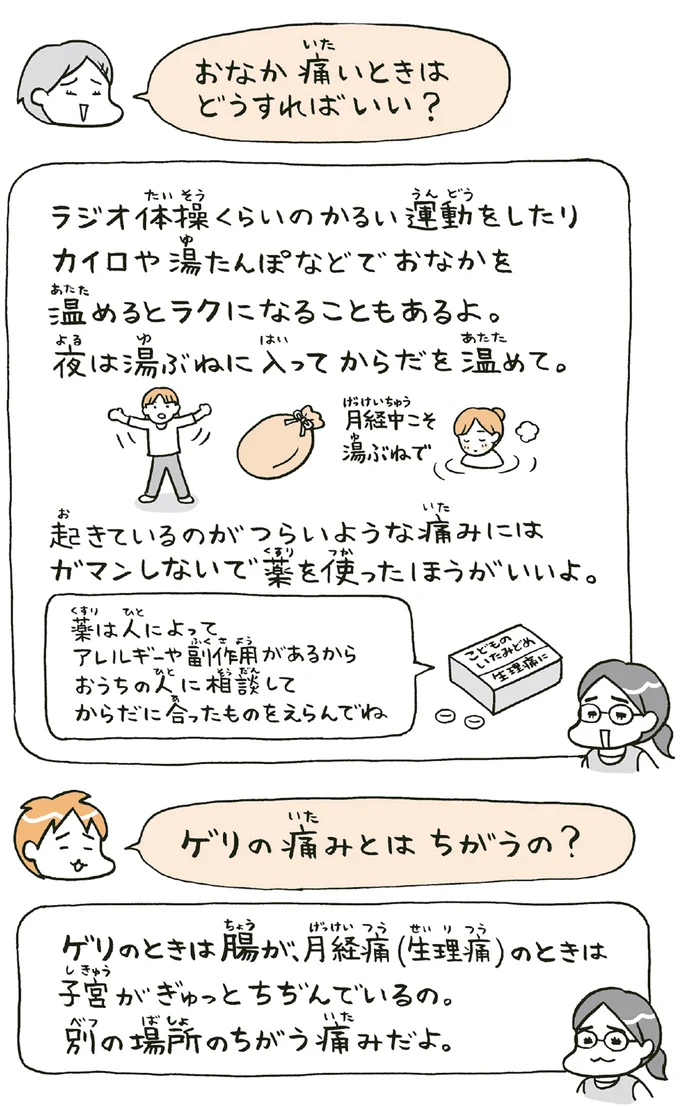 おなか痛いときは
どうすればいい？
ラジオ体操くらいのかるい運動をしたり
カイロや湯たんぽなどでおなかを
温めるとラクになることもあるよ。
夜は湯ぶねに入ってからだを温めて。
月経中こそ
湯ぶねで
起きているのがつらいような痛みには
ガマンしないで薬を使ったほうがいいよ。
薬は人によって
アレルギーや副作用があるから
おうちの人に相談して
からだに合ったものをえらんでね
こどもの
いたみどめ
生理痛に
ゲリの痛みとはちがうの？
ゲリのときは腸が、月経痛（生理痛）のときは
子宮がぎゅっとちぢんでいるの。
別の場所のちがう痛みだよ。